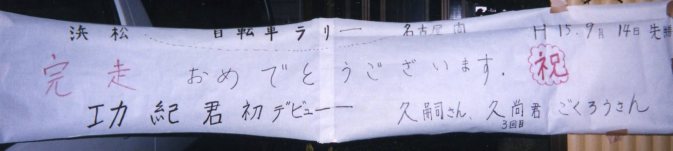 浜松 自転車ラリー 名古屋間 H15.9月14日
完走おめでとうございます. 祝
工力紀君初デビュー 久嗣さん、久尚君ごくろうさん
3回目